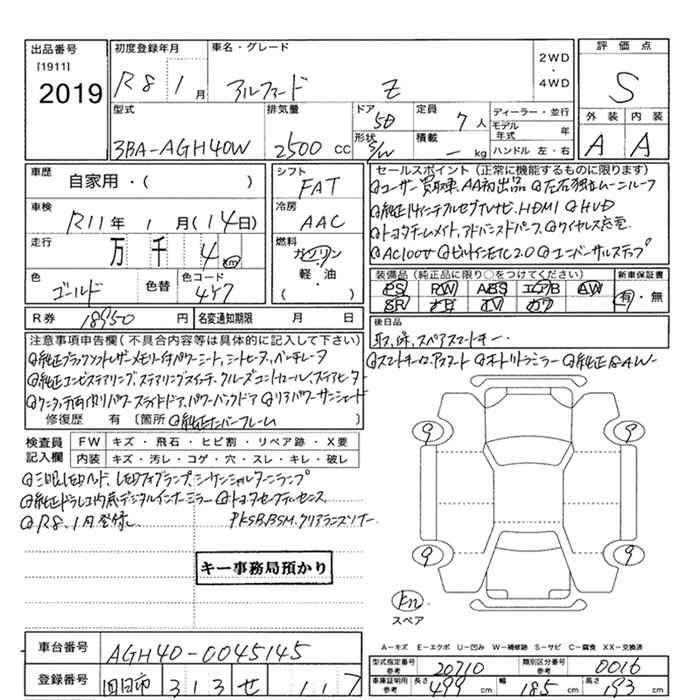 出品番号
[1911]
2019
初度登録年月
R8 1 月
車名・グレード
アルファード Z
2WD
・
4WD
評価点
S
外装 内装
A A
型式
3BA-AGH40W
排気量
2500 cc
ドア
5D
形状
S/W
定員
7 人
積載
— kg
ディーラー・並行
モデル年式 年
ハンドル 左・右
車歴
自家用・( )
車検
R11年 1月(14日)
走行
万 千 4 km
色
ゴールド
色替
色コード
4Y7
シフト
FAT
冷房
AAC
燃料
ガソリン
軽・油
( )
セールスポイント(正常に機能するものに限ります)
◎ユーザー買取車、AA初出品 ◎左右独立ムーンルーフ
◎純正14インチフルセグTVナビ、HDMI ◎HUD
◎トヨタチームメイト、アドバンスドパーク、◎ワイヤレス充電
◎AC100V ◎ビルトインETC2.0 ◎ユニバーサルステップ
装備品(純正品に限り○をつけてください)
PS PW ABS エアB AW
SR ナビ TV カワ
新車保証書
有・無
R券 18950 円
名変通知期限 月 日
後日品
取、保、スペアスマートキー、
注意事項申告欄(不具合内容等は具体的に記入して下さい)
◎純正ブラックソフトレザーメモリー付パワーシート、シートヒータ、ベンチレータ
◎純正コンビステアリング、ステアリングスイッチ、クルーズコントロール、ステアヒーター
◎スマートキー×2、プッシュスタート ◎オートトリトラミラー ◎純正18AW-
修復歴 有 (箇所 ◎純正ナンバーフレーム )
検査員記入欄
FW キズ・飛石・ヒビ割・リペア跡・X要
内装 キズ・汚レ・コゲ・穴・スレ・キレ・破レ
◎三眼LEDヘッド、LEDフォグランプ、シーケンシャルターンランプ
◎純正ドラレコ内蔵デジタルインナーミラー ◎トヨタセーフティセンス
◎R8、1月登録、 PKSB、BSM、クリアランスソナー、
キー事務局預かり
9 9
9 9
スペア
A-キズ E-エクボ U-凹み W-補修跡 S-サビ C-腐食 XX-交換済
車台番号
AGH40-0045145
登録番号
313 せ 117
型式指定番号
参考
20710
類別区分番号
参考
0016
車庫証明用
参考
長さ 499 cm 幅 185 cm 高さ 193 cm